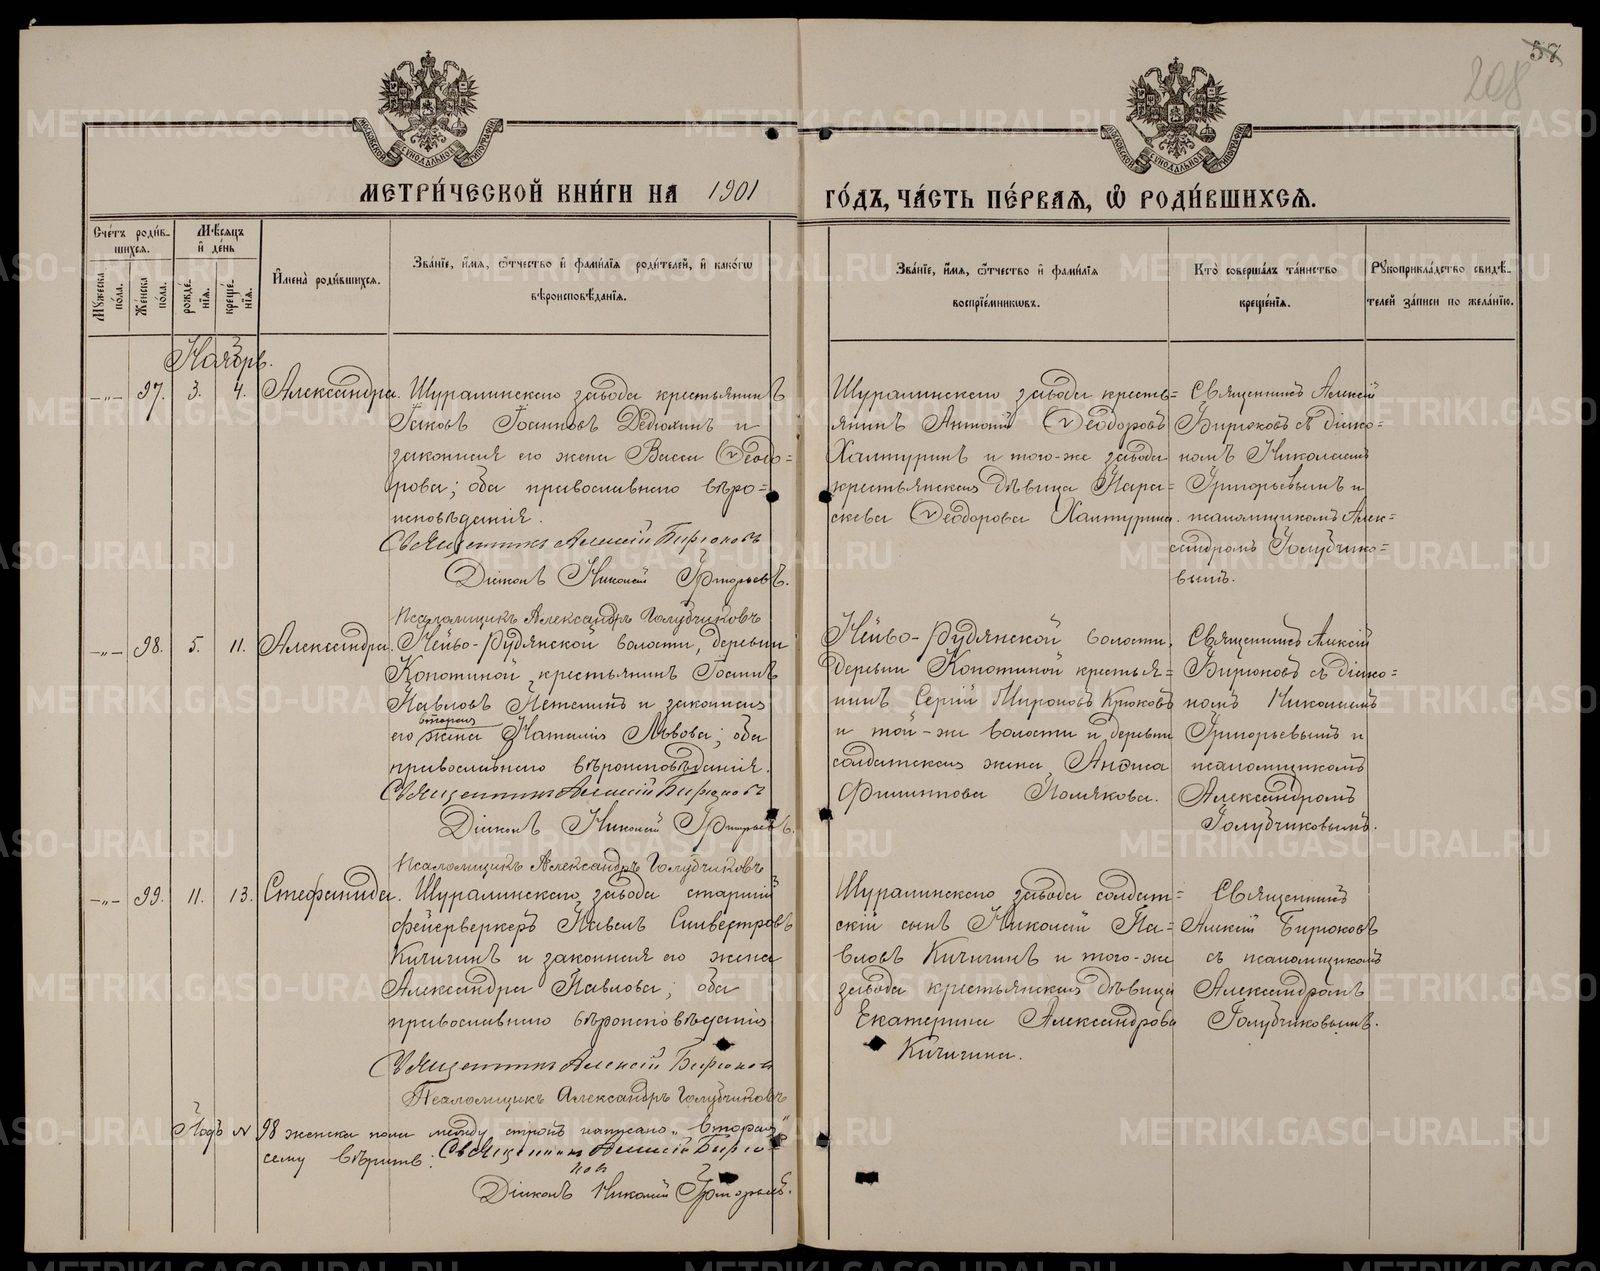 57
208
МОСКОВСКОЙ СѴНОДАЛЬНОЙ ТИПОГРАФІИ
МОСКОВСКОЙ СѴНОДАЛЬНОЙ ТИПОГРАФІИ
МЕТРИ́ЧЕСКОЙ КНИ́ГИ НА 1901
ГО́ДЪ, ЧА́СТЬ ПЕ́РВАѦ, Ѡ҆ РОДИ́ВШИХСѦ.
Сче́тъ роди́в-
шихсѧ.
Мꙋ́жеска по́ла.
Же́нска по́ла.
Мѣ́сѧцъ
и҆ де́нь
рожде́нїѧ.
креще́нїѧ.
И҆мена̀ роди́вшихсѧ.
Зва́нїе, и҆́мѧ, ѻ҆́тчество и҆ фами́лїѧ роди́телей, и҆ како́гѡ
вѣроисповѣ́данїѧ.
Зва́нїе, и҆́мѧ, ѻ҆́тчество и҆ фами́лїѧ
воспрїе́мникѡвъ.
Кто̀ соверша́лъ та́инство
креще́нїѧ.
Рꙋкоприкла́дство свидѣ́-
телей за́писи по жела́нїю.
Ноябрь.
-„- 97. 3. 4. Александра.
Шуралинскаго завода крестьянинъ
Іаковъ Іоанновъ Дедюхинъ и
законная его жена Васса Ѳеодо=
рова; оба православнаго вѣро=
исповѣданія.
Священникъ Алексій Бирюковъ
Діаконъ Николай Григорьевъ.
Псаломщикъ Александръ Голубчиковъ
Шуралинскаго завода кресть=
янинъ Антоній Ѳеодоровъ
Халтуринъ и того-же завода
крестьянская дѣвица Пара=
скева Ѳеодорова Халтурина.
Священникъ Алексій
Бирюковъ съ діако=
номъ Николаемъ
Григорьевымъ и
псаломщикомъ Алек=
сандромъ Голубчико=
вымъ.
-„- 98. 5. 11. Александра.
Нейво-Рудянской волости, деревни
Копотиной, крестьянинъ Іоаннъ
Павловъ и законная
вторая
его жена Наталія Львова; оба
православнаго вѣроисповѣданія.
Священникъ Алексій Бирюковъ
Діаконъ Николай Григорьевъ.
Псаломщикъ Александръ Голубчиковъ
Нейво-Рудянской волости,
деревни Копотиной крестья=
нинъ Сергій Мироновъ Крюковъ
и той-же волости и деревни
солдатская жена Анфиса
Филиппова Полякова.
Священникъ Алексій
Бирюковъ съ діако=
номъ Николаемъ
Григорьевымъ и
псаломщикомъ
Александромъ
Голубчиковымъ.
-„- 99. 11. 13. Стефанида.
Шуралинскаго завода старшій
фейерверкеръ Павелъ Силвестровъ
Кичигинъ и законная его жена
Александра Павлова; оба
православнаго вѣроисповѣданія.
Священникъ Алексій Бирюковъ
Псаломщикъ Александръ Голубчиковъ
Шуралинскаго завода солдат=
скій сынъ Николай Па=
вловъ Кичигинъ и того-же
завода крестьянская дѣвица
Екатерина Александрова
Кичигина.
Священникъ
Алексій Бирюковъ
съ псаломщикомъ
Александромъ
Голубчиковымъ.
Подъ № 98 женска пола между строкъ написано „вторая"
сему вѣрить: Священникъ Алексій Бирю=
ковъ
Діаконъ Николай Григорьевъ.
METRIKI.GASO-URAL.RU